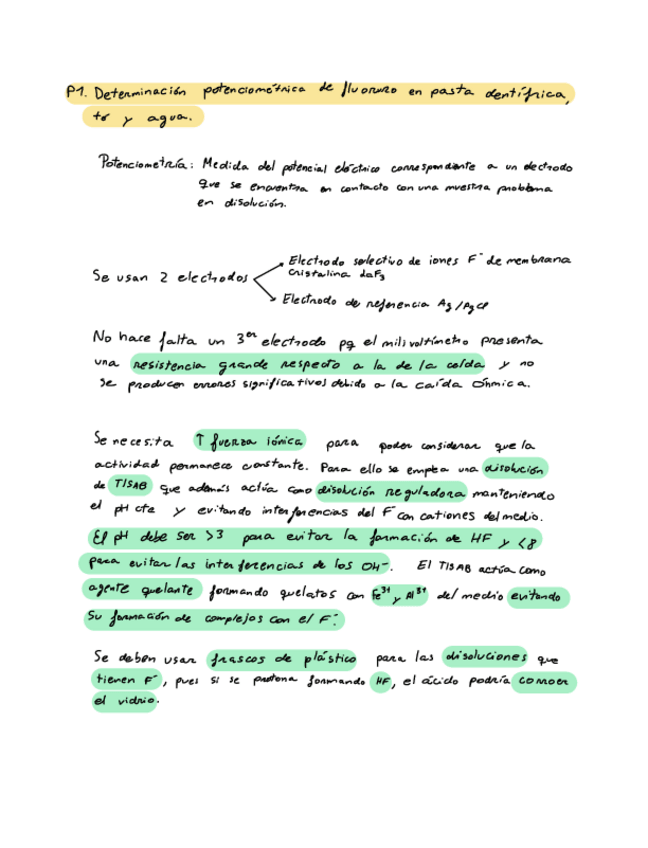 P1. Determinación potenciométrica de fluoruro en pasta dentífrica,
té y agua.
Potenciometría: Medida del potencial eléctrico correspondiente a un electrodo
que se encuentra en contacto con una muestra problema
en disolución.
Electrodo selectivo de iones F⁻ de membrana
cristalina LaF₃
Se usan 2 electrodos
Electrodo de referencia Ag/AgCl
No hace falta un 3er electrodo pq el milivoltímetro presenta
una resistencia grande respecto a la de la celda y no
se producen errores significativos debido a la caída óhmica.
Se necesita ↑ fuerza iónica para poder considerar que la
actividad permanece constante. Para ello se emplea una disolución
de TISAB que además actúa como disolución reguladora manteniendo
el pH cte y evitando interferencias del F⁻ con cationes del medio.
El pH debe ser >3 para evitar la formación de HF y <8
para evitar las interferencias de los OH⁻. El TISAB actúa como
agente quelante formando quelatos con Fe³⁺ y Al³⁺ del medio evitando
su formación de complejos con el F⁻.
Se deben usar frascos de plástico para las disoluciones que
tienen F⁻, pues si se protona formando HF, el ácido podría corroer
el vidrio.